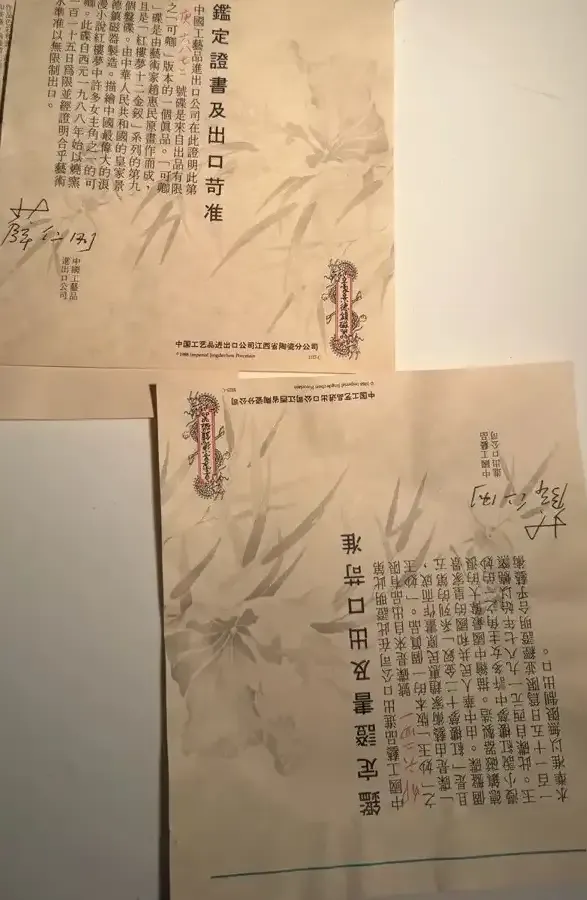 鑑定證書及出口苛准
中國工藝品進出口公司在此證明此第
六八七二 號碟是來自出品有限
之「可卿」版本的一個真品。「可卿
」碟是由藝術家趙惠民原畫作而成，
且是「紅樓夢十二金釵」系列的第九
個盤碟。由中華人民共和國的皇家景
德鎮磁器製造。描繪中國最偉大的浪
漫小說紅樓夢中許多女主角之一的可
卿。此碟自西元一九八八年始以燒窯
一百一十五日爲限並經證明合乎藝術
水準准以無限制出口。
中國工藝品
進出口公司
中国工艺品进出口公司江西省陶瓷分公司
©1988 Imperial Jingdezhen Porcelain
鑑定證書及出口苛准
中國工藝品進出口公司在此證明此第
號碟是來自出品有限
之「妙玉」版本的一個真品。「妙玉
」碟是由藝術家趙惠民原畫作而成，
且是「紅樓夢十二金釵」系列的第五
個盤碟。由中華人民共和國的皇家景
德鎮磁器製造。描繪中國最偉大的浪
漫小說紅樓夢中許多女主角之一的妙
玉。此碟自西元一九八七年始以燒窯
一百一十五日爲限並經證明合乎藝術
水準准以無限制出口。
中國工藝品
進出口公司
中国工艺品进出口公司江西省陶瓷分公司
©1988 Imperial Jingdezhen Porcelain